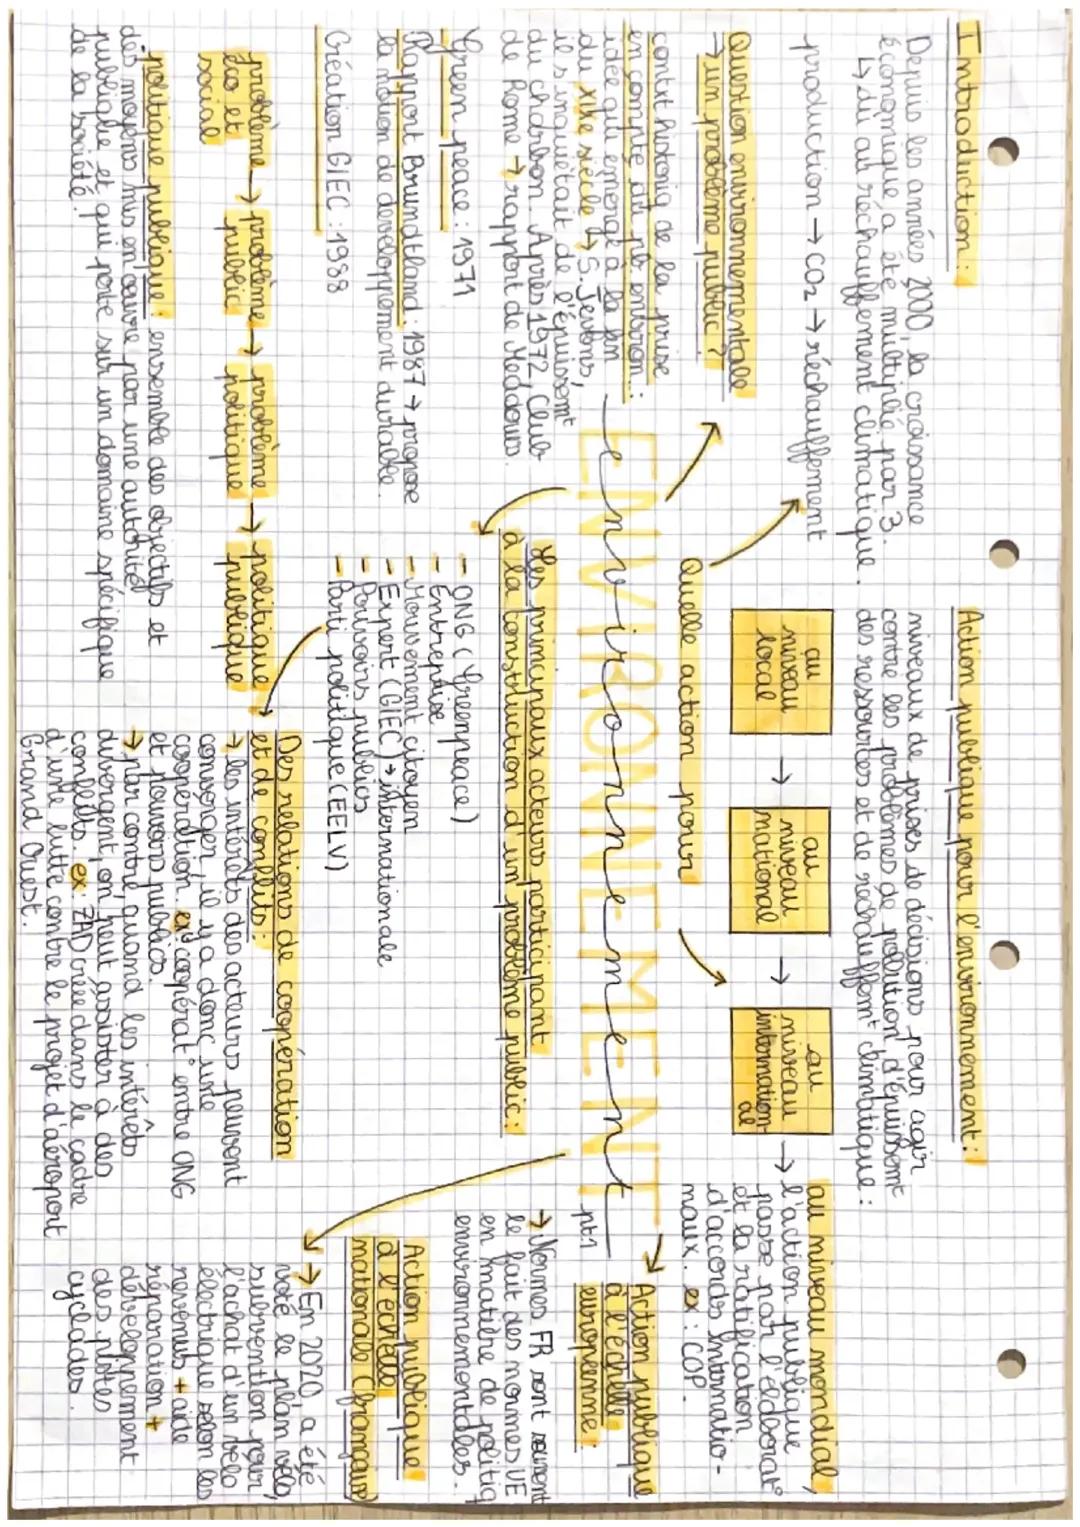 Introduction :
Depuis les années 2000, la croissance
économique a été multiplié par 3.
↳ du au réchauffement climatique.
production → CO2 → réchauffement
Question environnementale
→ un problème public ?
contxt historiq de la prise
en compte du pb environ :
idée qui émerge à la fin
du XIXe siècle ↳ S. Jevons,
il s'inquiétait de l'épuisemt
du charbon. Après 1972, Club
de Rome → rapport de Meddows.
Green peace : 1971
Rapport Brundtland : 1987 → propose
la notion de developpement durable.
Création GIEC : 1988
problème éco et social → problème public → problème politique → politique publique
politique publique : ensemble des objectifs et
des moyens mis en œuvre par une autorité
publique et qui porte sur un domaine spécifique
de la société.
ENVIRONNEMENT
environnement
pt1
Quelle action pour
Action publique pour l'environnement :
niveaux de prises de décisions pour agir
contre les problèmes de pollution, d'épuisemt
des ressources et de réchauffemt climatique :
au niveau local → au niveau national → au niveau international →
au niveau mondial,
l'action publique
passe par l'élaborat°
et la ratification
d'accords internatio-
naux. ex : COP.
Les principaux acteurs participant
à la construction d'un problème public :
- ONG (Greenpeace)
- Entreprise
- Mouvement citoyen
- Expert (GIEC) → internationale
- Pouvoirs publics
- Parti politique (EELV)
Des relations de coopération
et de conflits :
→ les intérêts des acteurs peuvent
converger, il y a donc une
coopération. ex : coopérat° entre ONG
et pouvoirs publics.
→ par contre, quand les intérêts
divergent, on peut assister à des
conflits. ex : ZAD crée dans le cadre
d'une lutte contre le projet d'aéroport
Grand Ouest.
Action publique
à l'échelle
européenne :
→ Normes FR sont souvent
le fait des normes UE
en matière de politiq
environnementales.
Action publique
à l'échelle
nationale (française)
→ En 2020, a été
voté le plan vélo,
subvention pour
l'achat d'un vélo
électrique selon les
revenus + aide
réparation +
développement
des pistes
cyclables.